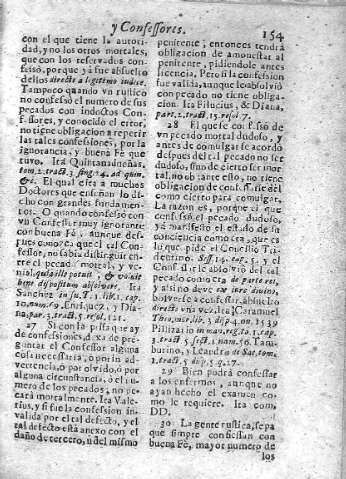 y Confessores. 154
con el que tiene la autori-
dad, y no los otros mortales,
que con los reservados con-
fessò, porque ya fue absuelto
dellos directè a legitimo iudice.
Tampoco quando vn rustico
no confessò el numero de sus
pecados con indoctos Con-
fessores, y conocido el error,
no tiene obligacion a repetir
las tales confessiones, por la
ignorancia, y buena Fè que
tuvo. Ita Quintanadueñas,
tom. 2. tract. 3. sing. 14. ad quin.
&c. El qual cita a muchos
Doctores que enseñan lo di-
cho con grandes fundamen-
tos. O quando confessò con
vn Confessor muy ignorante
con buena Fè, aunque des-
pues conozca que el tal Con-
fessor, no sabia distinguir en-
tre el pecado mortal, y ve-
nial, quia ille potuit, & valuit
bene dispositum absolvere. Ita
Sanchez in sū. T. 1. lib. 1. cap.
10. num. 69. Enriquez, y Dia-
na par. 3. tract. 5. resol. 121.
27 Si con la prissa que ay
de confessiones dexa de pre-
guntar el Confessor alguna
cosa necessaria, ò por in ad-
vertencia, ò por olvido, ò por
alguna circunstancia, ò el nu-
mero de los pecados, no pe-
carà mortalmente. Ita Vale-
rius, y si fue la confession in-
valida por el tal defecto, y el
tal defecto està anexo con el
daño de tercero, ù del mismo
penitente, entonces tendrà
obligacion de amonestar al
penitente, pidiendole antes
licencia. Pero si la confession
fue valida, aunque lo absolviò
con pecado no tiene obliga-
cion. Ita Filucius, & Diana,
part. 2. tract. 15. resol. 7.
28 El que se confessò de
vn pecado mortal dudoso, y
antes de comulgar se acordò
despues del tal pecado no ser
dudoso, sino de cierto ser mor-
tal, no obstante esto, no tiene
obligacion de confessarse del
como cierto para comulgar.
La razon es, porque el que
confessò el pecado dudoso,
ya manifestò el estado de su
conciencia como era, que es
lo que pide el Concilio Tri-
dentino. Sess. 14. cap. 5. y el
Confessor le absolviò del tal
pecado como era de parte rei,
y assi no deve ex iure divino,
bolverse a confessar, absuelto
directo vna vez, ita Caramuel
Theo. mor. lib. 3. disp. 4. on. 1539
Pillizario in man. reg. to. 1. cap.
3. tract. 5. sect. 1. num. 56. Tam-
burino, y Leandro de Sac. tom.
1. tract. 5. disp. 5. q. 27.
29 Bien podrà confessar
a los enfermos, aunque no
ayan hecho el examen co-
mo se requiere. Ita com.
DD.
30 La gente rustica, sepa
que siempre confiessan con
buena Fè, mayor numero de
los